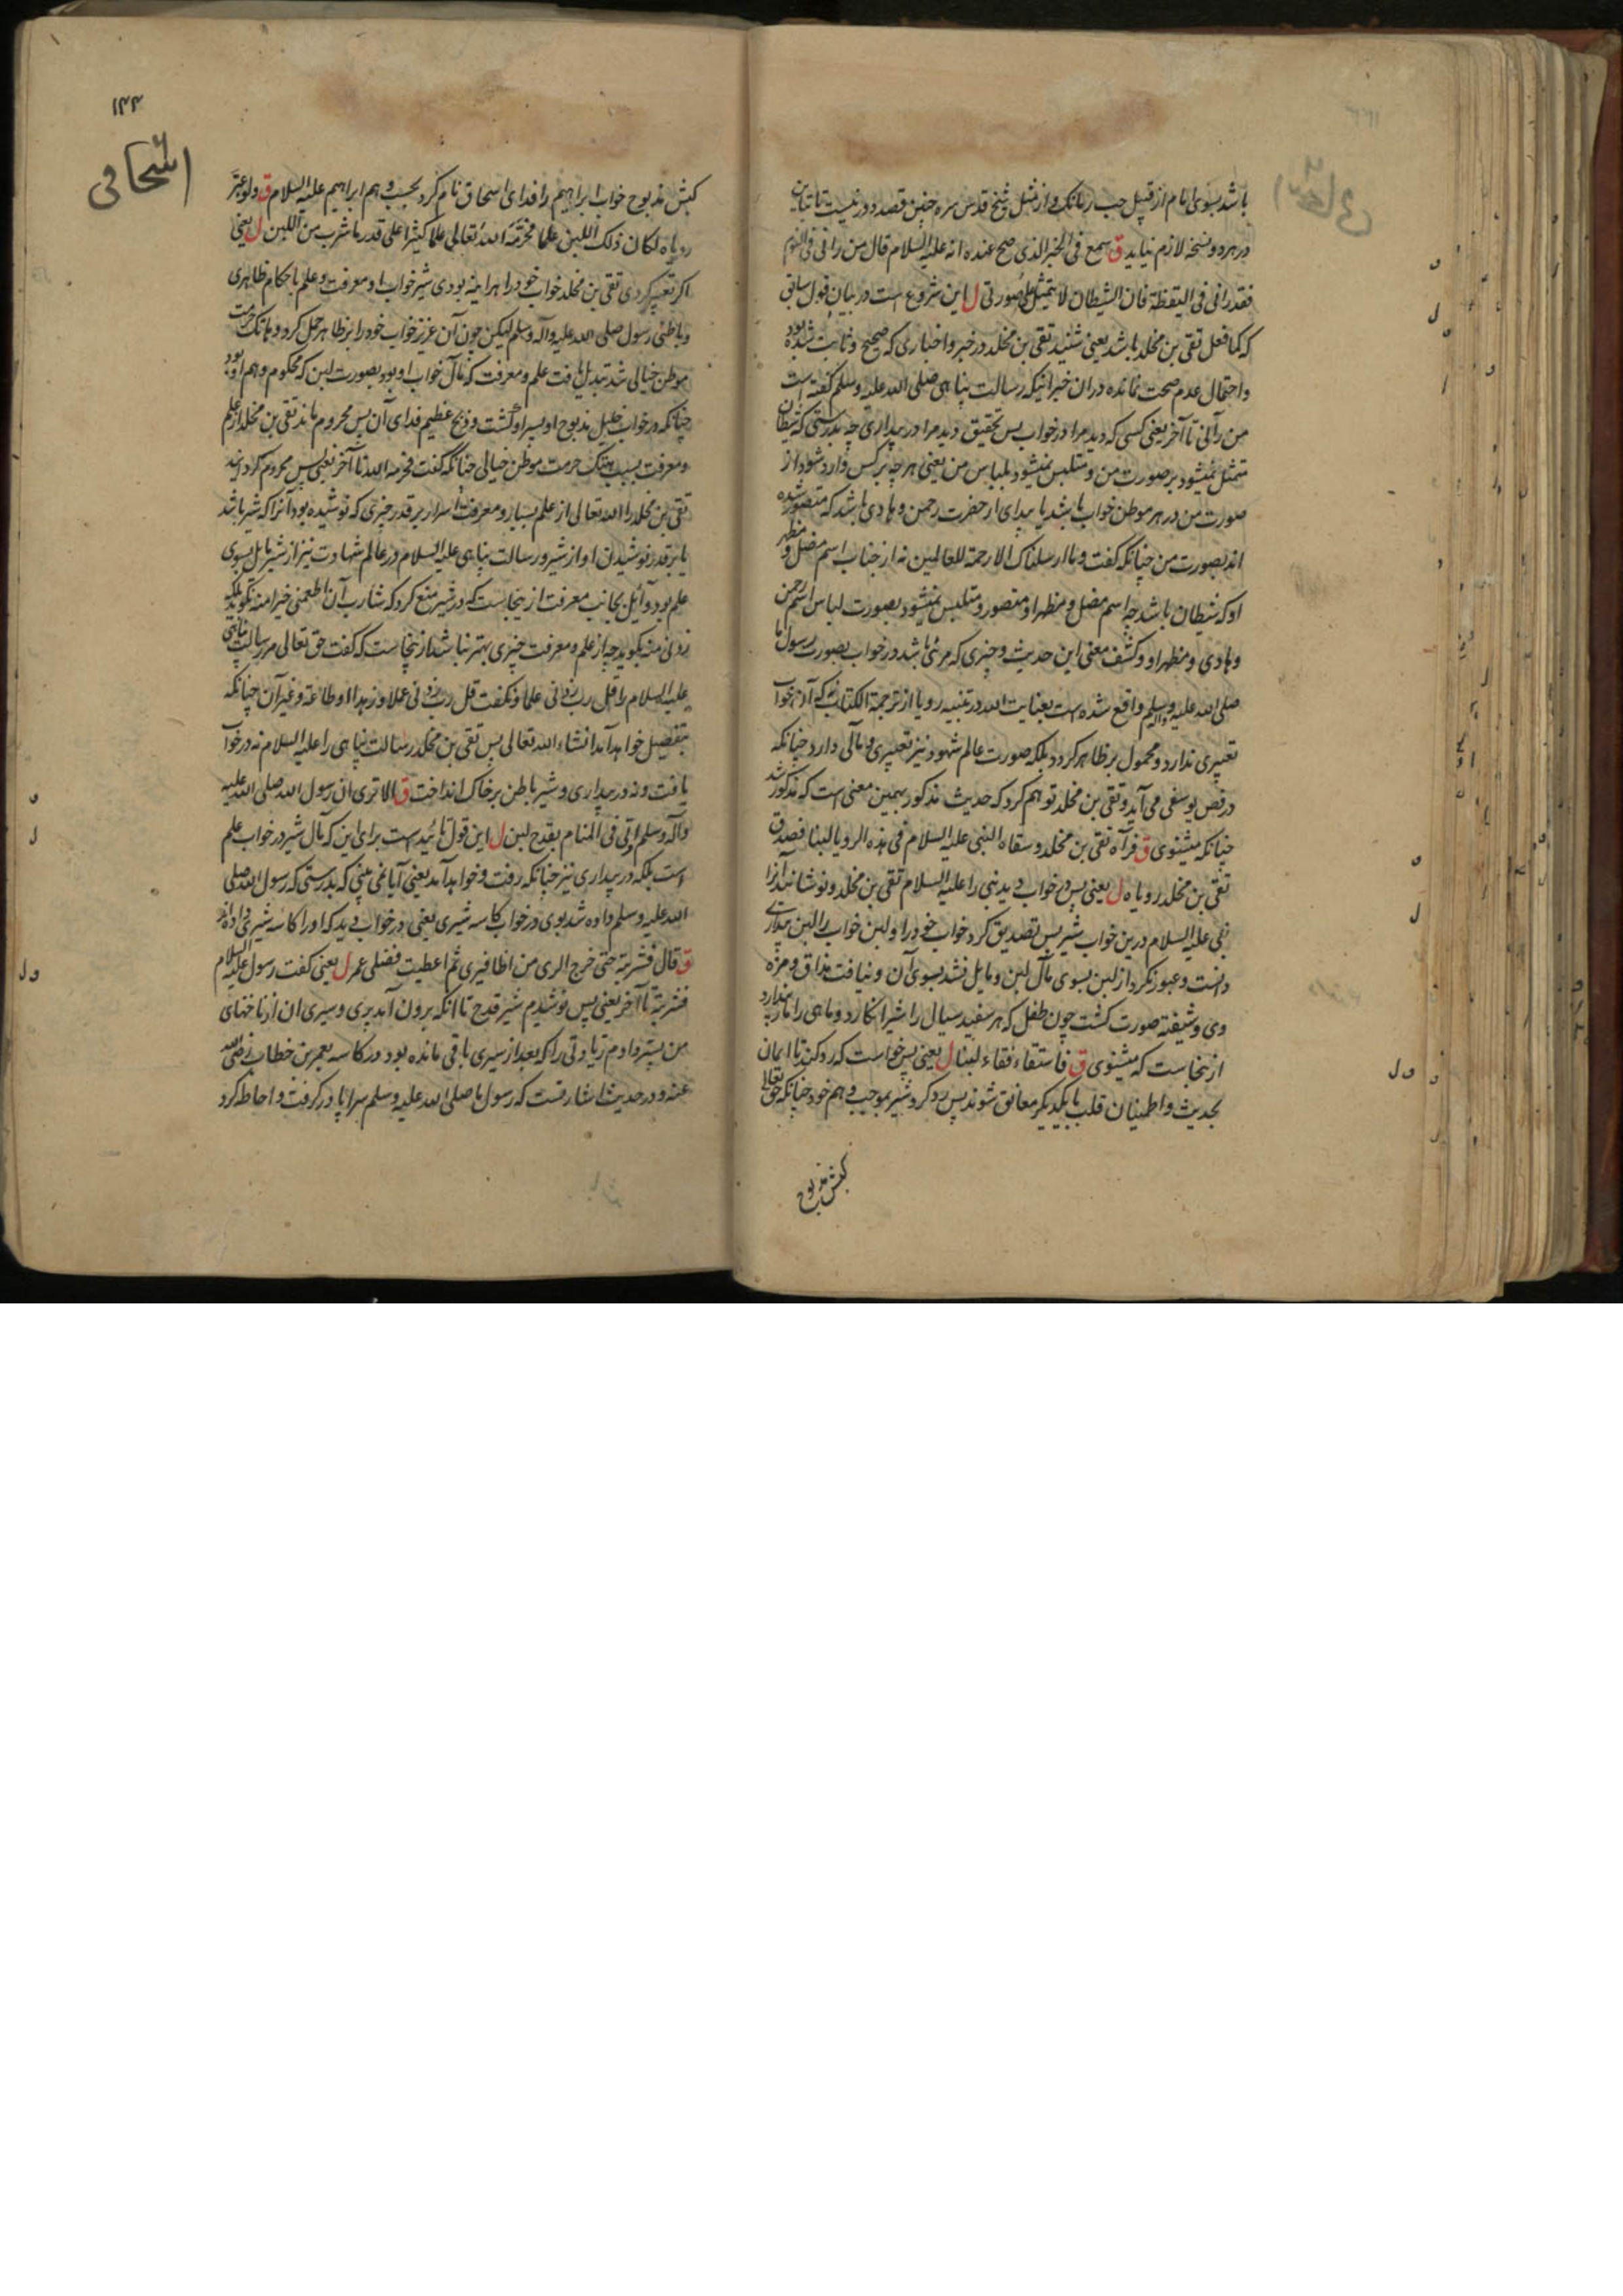 باشد بسوی نام از قبیل حب رمانک و از مثل شیخ قدس سره خفین قصد دور نیست تا تباین
در هر دو نسخه لازم نیاید ق سمع فی الخبر الذی صح عنده انه علیه السلام قال من رانی فی النوم
فقد رانی فی الیقظة فان الشیطان لا یتمثل علی صورتی ل این شروع است در بیان قول سابق
که کما فعل تقی بن مخلد باشد یعنی شنید تقی بن مخلد در خبر و اخباری که صحیح و ثابت شده بود
و احتمال عدم صحت نمانده در ان خبر اینکه رسالت پناهی صلی الله علیه وسلم گفته است
من رآنی تا آخر یعنی کسی که دید مرا در خواب پس تحقیق دید مرا در بیداری چه بدرستی که شیطان
متمثل نمیشود بر صورت من و متلبس نمیشود بلباس من یعنی هر چه بر کس وارد شود از
صورت من در هر موطن خواب باشد یا بیداری از حضرت رحمن و هادی باشد که متصور شده
اند بصورت من چنانکه گفت وما ارسلناک الا رحمة للعالمین نه از جناب اسم مضل و مظهر
او که شیطان باشد چه اسم مضل و مظهر او متصور و متلبس نمیشود بصورت لباس اسم رحمن
و هادی و مظهر او و کشف معنی این حدیث و چیزی که مرئی باشد در خواب بصورت رسول ما
صلی الله علیه وآله وسلم واقع شده است بعنایت الله در تنبیه رویا از ترجمة الکتاب که آن خواب
تعبیری ندارد و محمول بر ظاهر گردد بلکه صورت عالم شهود نیز تعبیری و مآلی دارد چنانکه
در فص یوسفی می آید و تقی بن مخلد توهم کرد که حدیث مذکور بهمین معنی است که مذکور شد
چنانکه میشنوی ق فرآه تقی بن مخلد و سقاه النبی علیه السلام فی هذه الرویا لبنا فصدق
تقی بن مخلد رویاه ل یعنی پس در خواب دید نبی را علیه السلام تقی بن مخلد و نوشانید آنرا
نبی علیه السلام درین خواب شیر پس تصدیق کرد خواب خود را و لبن خواب را لبن بیداری
دانست و عبور نکرد از لبن بسوی مآل لبن و مایل نشد بسوی آن و نیافت مذاق و مزه
وی و شیفته صورت گشت چون طفل که هر سفید سیال را شیر انکارد و ماهی را مار پندارد
ازینجاست که میشنوی ق فاستقاء فقاء لبنا ل یعنی پس خواست که رد کند تا ایمان
بحدیث و اطمینان قلب با یکدیگر معانق شوند پس رد کرد شیر بموجب وهم خود چنانکه حق تعالی
کبش مذبوح
۱۴۴
اسحاقی
کبش مذبوح خواب ابراهیم را فدای اسحاق نام کرد بحسب وهم ابراهیم علیه السلام ق ولو عبر
رویاه لکان ذلک اللبن علما فحرمه الله تعالی علما کثیرا علی قدر ما شرب من اللبن ل یعنی
اکر تعبیر کردی تقی بن مخلد خواب خود را هر اینه بودی شیر خواب او معرفت و علم باحکام ظاهری
و باطنی رسول صلی الله علیه وآله وسلم لیکن چون آن عزیز خواب خود را بر ظاهر حمل کرد و هاتک حرمت
موطن خیالی شد تبدیل یافت علم و معرفت که مآل خواب او بود بصورت لبن که محکوم وهم او بود
چنانکه در خواب خلیل مذبوح او پسر او گشت و ذبح عظیم فدای آن پس محروم ماند تقی بن مخلد از علم
و معرفت بسبب هتک حرمت موطن خیالی چنانکه گفت فحرمه الله تا آخر یعنی پس محروم گردانید
تقی بن مخلد را الله تعالی از علم بسیار و معرفت اسرار بر قدر چیزی که نوشیده بود آنرا که شیر باشد
یا بر قدر نوشیدن او از شیر و رسالت پناهی علیه السلام در عالم شهادت نیز از شیر مایل بسوی
علم بود و آئل بجانب معرفت ازینجاست که در شیر منع کرد که شارب آن اطعمنی خیرا منه نگوید بلکه
زدنی منه بگوید چه از علم و معرفت چیزی بهتر نباشد ازینجاست که گفت حق تعالی مر رسالت پناهی
علیه السلام را قل رب زدنی علما و نگفت قل رب زدنی عملا و زهدا او طاعة و غیر آن چنانکه
بتفصیل خواهد آمد انشاء الله تعالی پس تقی بن مخلد رسالت پناهی را علیه السلام نه در خواب
یافت و نه در بیداری و شیر باطن بر خاک انداخت ق الا تری ان رسول الله صلی الله علیه
وآله وسلم اوتی فی المنام بقدح لبن ل این قول تائید است برای این که مآل شیر در خواب علم
است بلکه در بیداری نیز چنانکه رفت و خواهد آمد یعنی آیا نمی بینی که بدرستی که رسول الله صلی
الله علیه وسلم داده شد بوی در خواب کاسه شیری یعنی در خواب دید که او را کاسه شیر می دادند
ق قال فشربته حتی خرج الری من اظافیری ثم اعطیت فضلی عمر ل یعنی گفت رسول علیه السلام
فشربته تا آخر یعنی پس نوشیدم شیر قدح تا آنکه برون آمد پری و سیری ان از ناخنهای
من پستر دادم زیادتی را که بعد از سیری باقی مانده بود در کاسه بعمر بن خطاب رضی الله
عنه و در حدیث اشارتست که رسول ما صلی الله علیه وسلم سراپا در گرفت و احاطه کرد